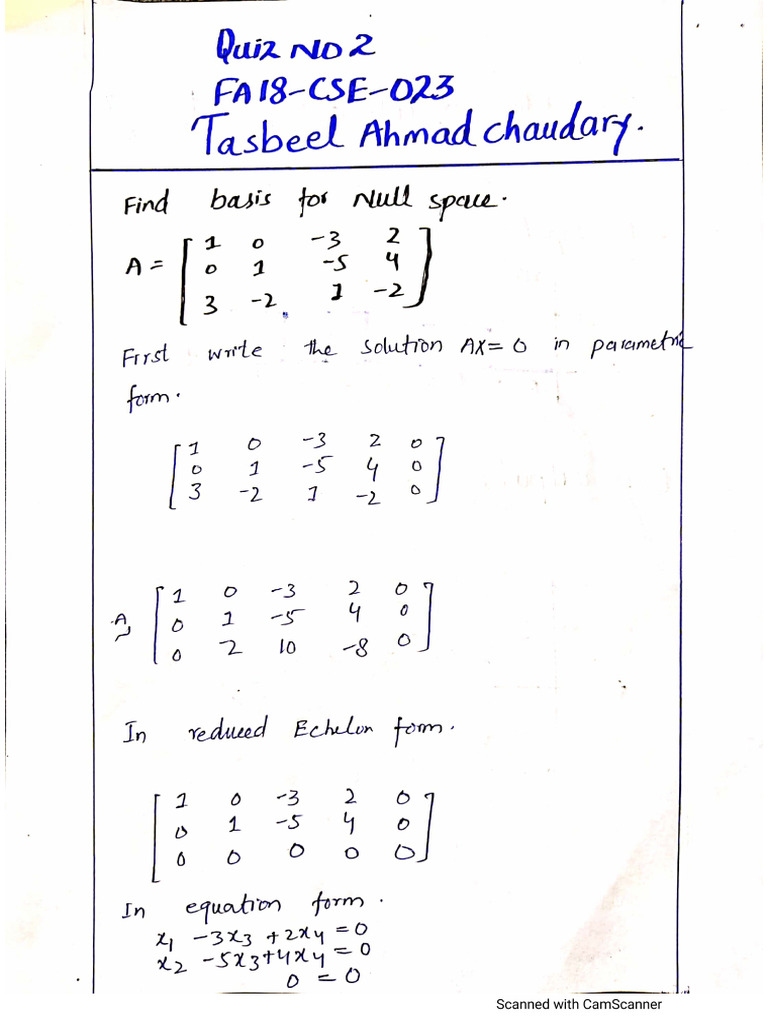 Quiz NO 2
FA18-CSE-023
Tasbeel Ahmad chaudary.
Find basis for Null space.
A = [ 1 0 -3 2
0 1 -5 4
3 -2 1 -2 ]
First write the solution AX=0 in parametric
form.
[ 1 0 -3 2 0
0 1 -5 4 0
3 -2 1 -2 0 ]
A ~ [ 1 0 -3 2 0
0 1 -5 4 0
0 2 10 -8 0 ]
In reduced Echelon form.
[ 1 0 -3 2 0
0 1 -5 4 0
0 0 0 0 0 ]
In equation form.
x1 -3x3 +2x4 = 0
x2 -5x3+4x4 = 0
0 = 0
Scanned with CamScanner